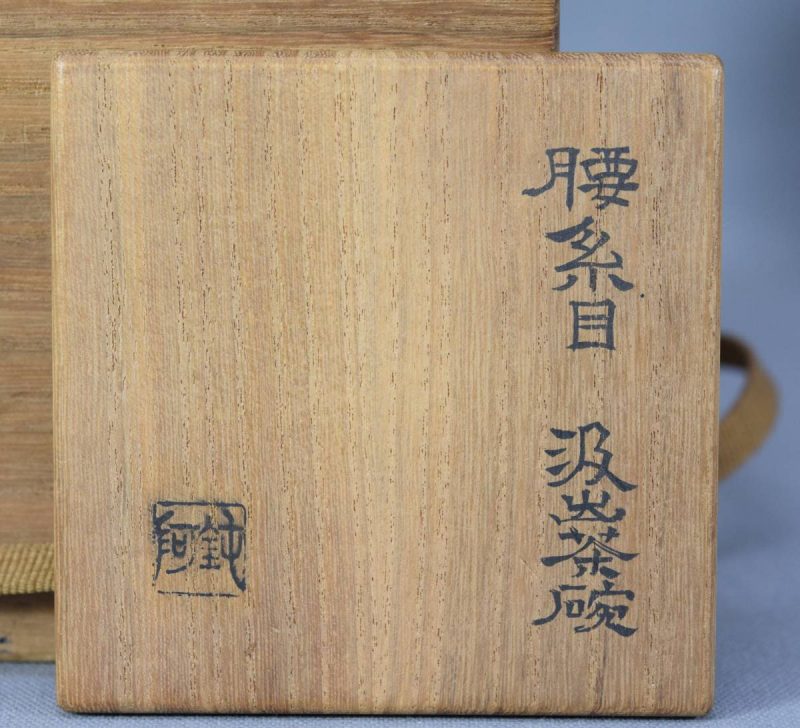 腰糸目 汲出茶碗